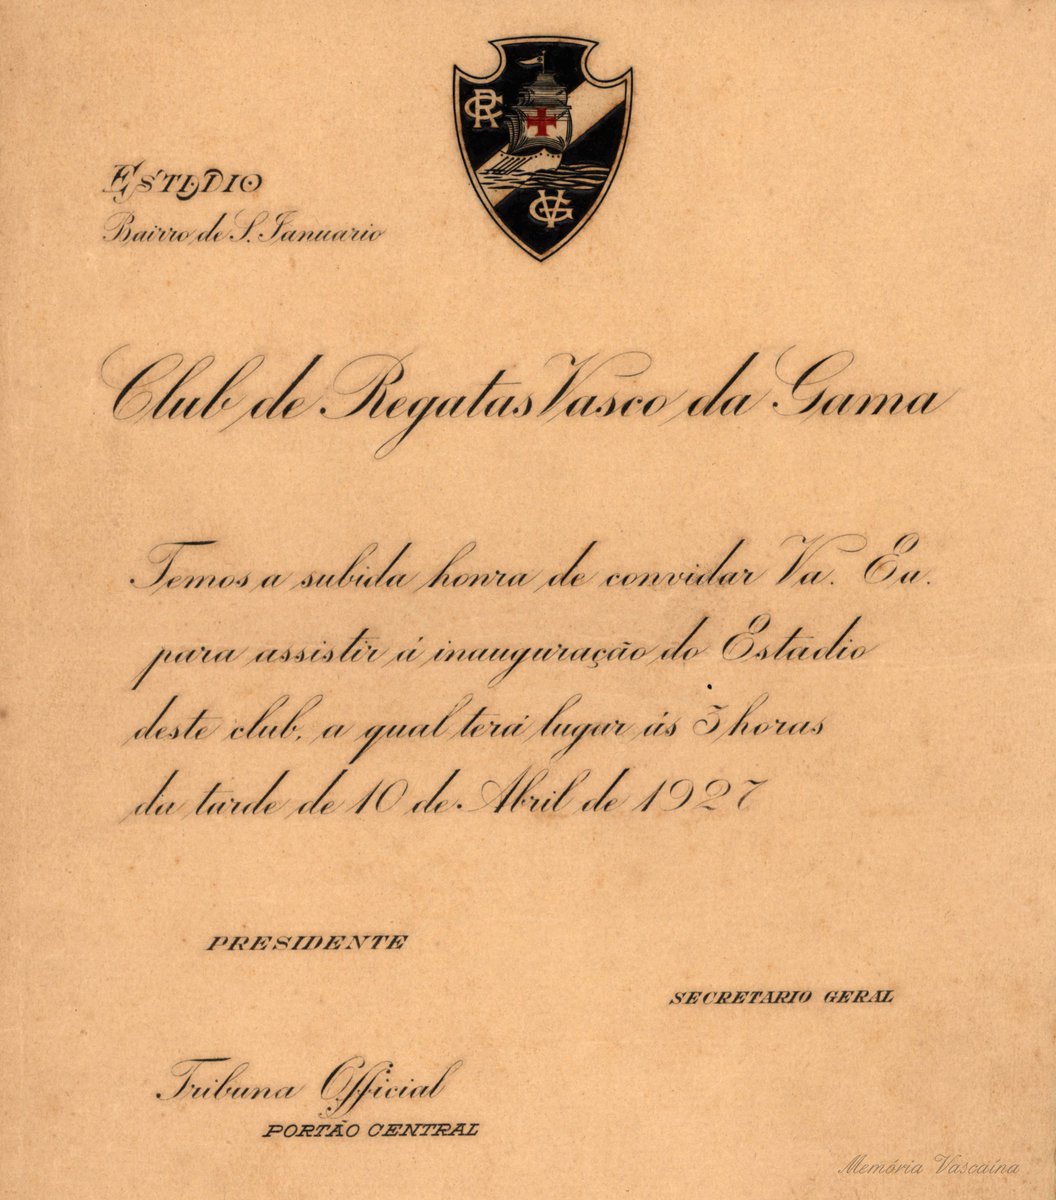 CR
VG
ESTADIO
Bairro de S. Januario
Club de Regatas Vasco da Gama
Temos a subida honra de convidar Va. Ea.
para assistir á inauguração do Estadio
deste club, a qual terá lugar ás 3 horas
da tarde de 10 de Abril de 1927
PRESIDENTE
SECRETARIO GERAL
Tribuna Official
PORTÃO CENTRAL
Memória Vascaína